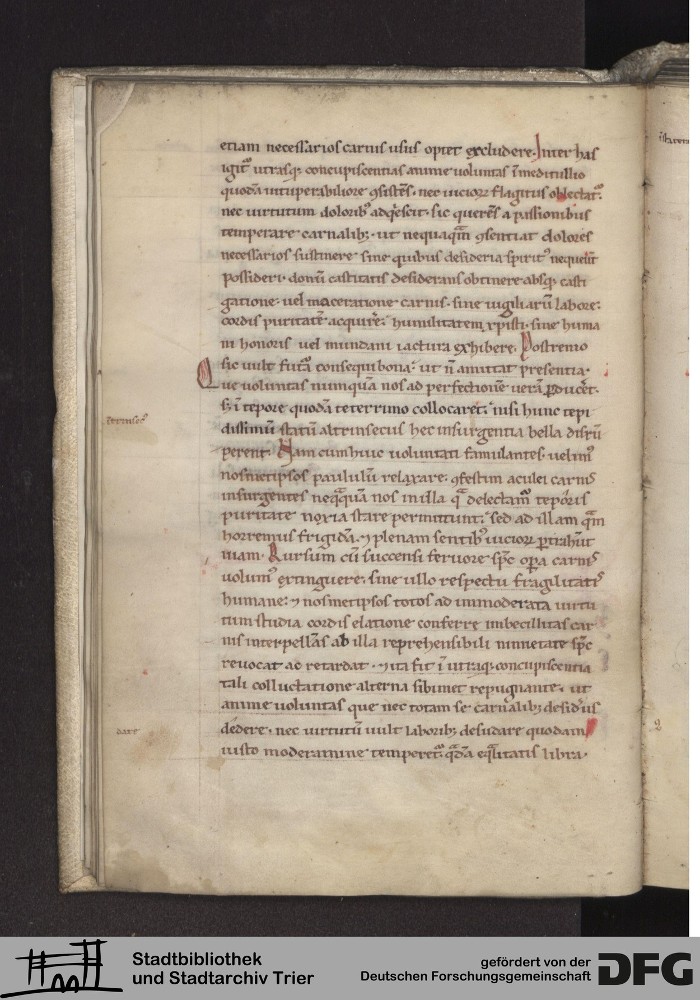 etiam necessarios carnis usus optet excludere. Inter has
igit᷒ utrasq; concupiscentias anime uoluntas ĩ meditullio
quodã uituperabiliore ꝯsistẽs. nec uicioꝝ flagitiis oblectat᷒.
nec uirtutum dolorib᷒ adq̇escit. sic querẽs a passionibus
temperare carnalib;. ut nequaquã ꝯsentiat dolores
necessarios sustinere sine quibus desideria spirit᷒ nequeũt
possideri. donũ castitatis desiderans obtinere absq; casti
gatione. uel maceratione carnis. sine uigiliarũ labore.
cordis puritatẽ acquirẽ. humilitatem xp̅isti. sine huma
ni honoris uel mundani iactura exhibere. Postremo
sic uult futã consequi bona. ut ñ amittat presentia.
Que uoluntas numquã nos ad perfectionẽ uerã ꝑducẽt.
s; ĩ tepore quodã teterrimo collocaret. nisi hunc tepi
dissimũ statũ altrinsecus hec insurgentia bella disrũ
perent. Nam cum huic uoluntati famulantes. uelim᷒
nosmetipsos paululũ relaxare. ꝯfestim aculei carnis
insurgentes neq̃quã nos in illa q̃ delectam᷒ teporis
puritate noxia stare permittunt. sed ad illam quã
horremus frigidã. ⁊ plenam sentib᷒ uicioꝝ ꝑtrahũt
uiam. Rursum cũ succensi feruore sp̅c oꝑa carnis
uolum᷒ extinguere. sine ullo respectu fragilitatis
humane. ⁊ nosmetipsos totos ad immoderata uirtu
tum studia cordis elatione conferre imbecillitas car
nis interpellãs ab illa reprehensibili nimietate sp̅c
reuocat ac retardat. ⁊ ita fit ĩ utraq; concupiscentia
tali colluctatione alterna sibimet repugnante. ut
anime uoluntas que nec totam se carnalib; desideriis
dedere. nec uirtutũ uult laborib; desudare quodam
iusto moderamine temperet᷒. q̇dã eq̃litatis libra.
dare
2
Stadtbibliothek
und Stadtarchiv Trier
gefördert von der
Deutschen Forschungsgemeinschaft
DFG